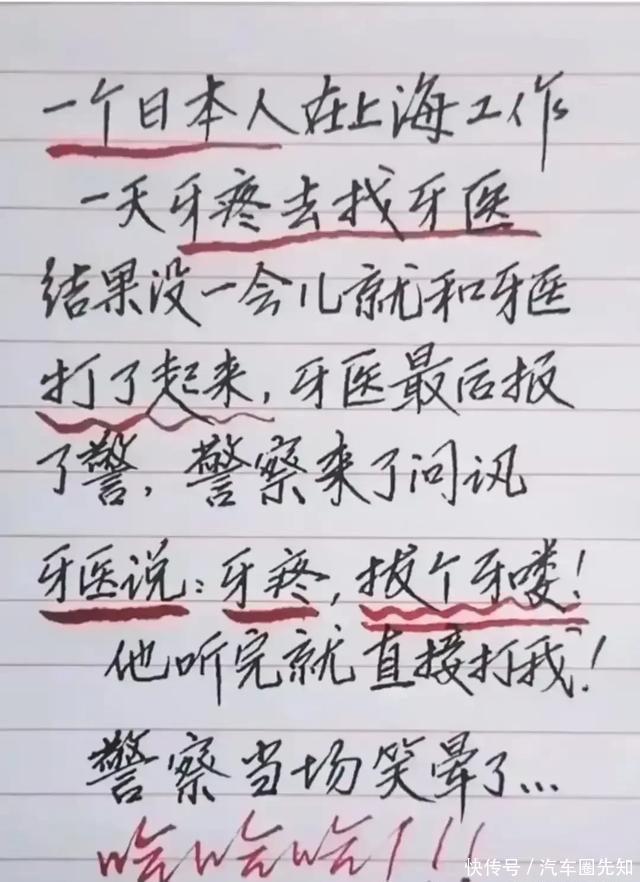 一个日本人在上海工作
一天牙疼去找牙医
结果没一会儿就和牙医
打了起来,牙医最后报
了警,警察来了问讯
牙医说:牙疼,拔个牙喽!
他听完就直接打我!
警察当场笑晕了...
哈哈哈!!!
快传号/汽车圈先知